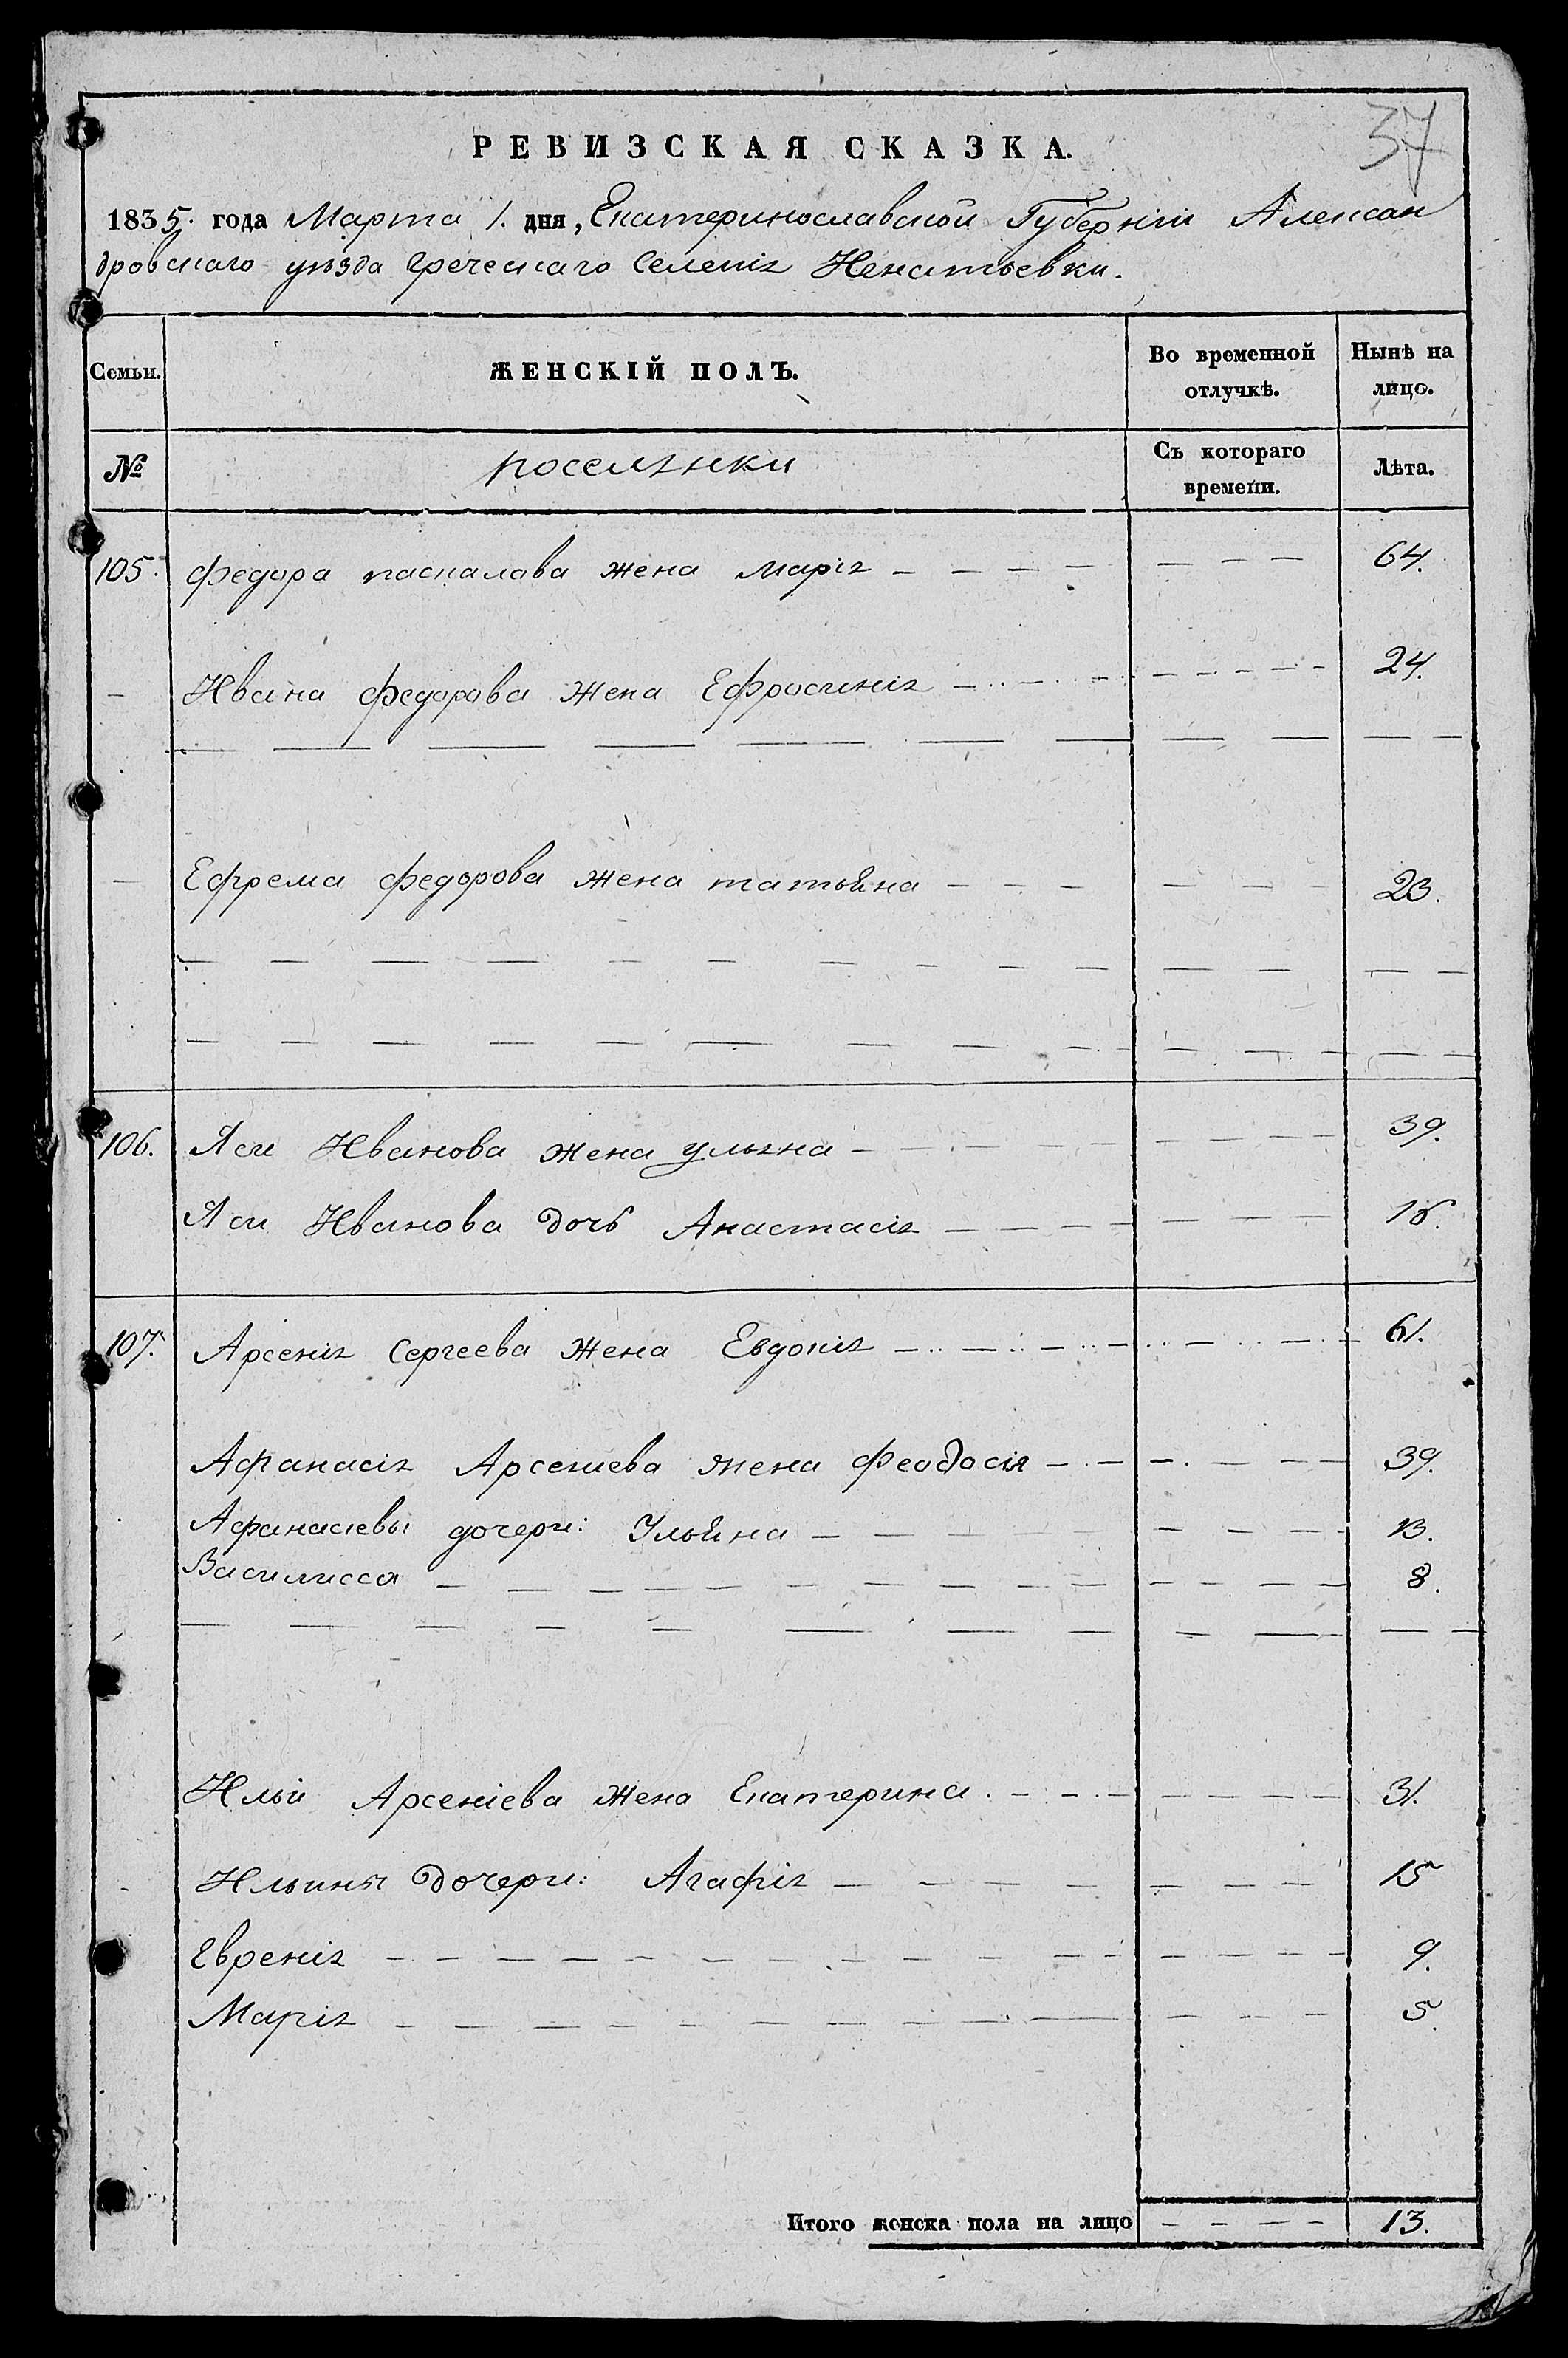 37
РЕВИЗСКАЯ СКАЗКА.
1835. года Марта 1. дня, Екатеринославской Губерніи Алексан
дровскаго уѣзда Греческаго Селенія Игнатьевки.
Семьи. ЖЕНСКІЙ ПОЛЪ. Во временной отлучкѣ. Нынѣ на лицо.
№ поселянки Съ котораго времени. Лѣта.
105. Федора паскалова жена Марія 64.
Ивана Федорова жена Ефросинія 24.
Ефрема Федорова жена татьяна 23.
106. Иванова жена ульяна 39.
Иванова дочь Анастасія
107. Арсенія Сергеева жена Евдокія 61.
Афанасія Арсеніева жена Феодосія 39.
Афанасіевы дочери: Ульяна 13.
Василисса 8.
Ильи Арсеніева жена Екатерина. 31.
Ильины дочери: Агафія 15
Евренія 9.
Марія 5.
Итого женска пола на лицо 13.